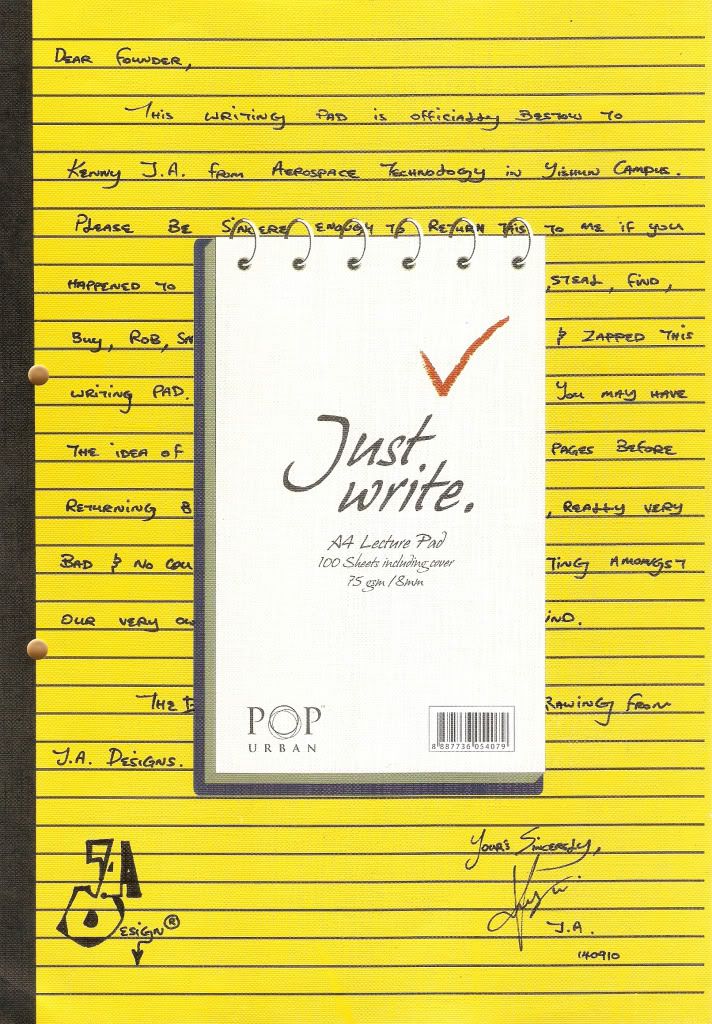 DEAR FOUNDER,
THIS WRITING PAD IS OFFICIALLY BESTOW TO
KENNY J.A. FROM AEROSPACE TECHNOLOGY IN YISHUN CAMPUS.
PLEASE BE SINCERE ENOUGH TO RETURN THIS TO ME IF YOU
HAPPENED TO , STEAL, FIND,
BUY, ROB, & ZAPPED THIS
WRITING PAD. YOU MAY HAVE
THE IDEA OF PAGES BEFORE
RETURNING , REALLY VERY
BAD & NO AMONGST
OUR VERY
THE DRAWING FROM
J.A. DESIGNS.
Just
write.
A4 Lecture Pad
100 Sheets including cover
75 gsm / 8mm
POP™
URBAN
8 887736 054079
J.A
DESIGN®
YOUR'S SINCERELY,
J.A.
140910